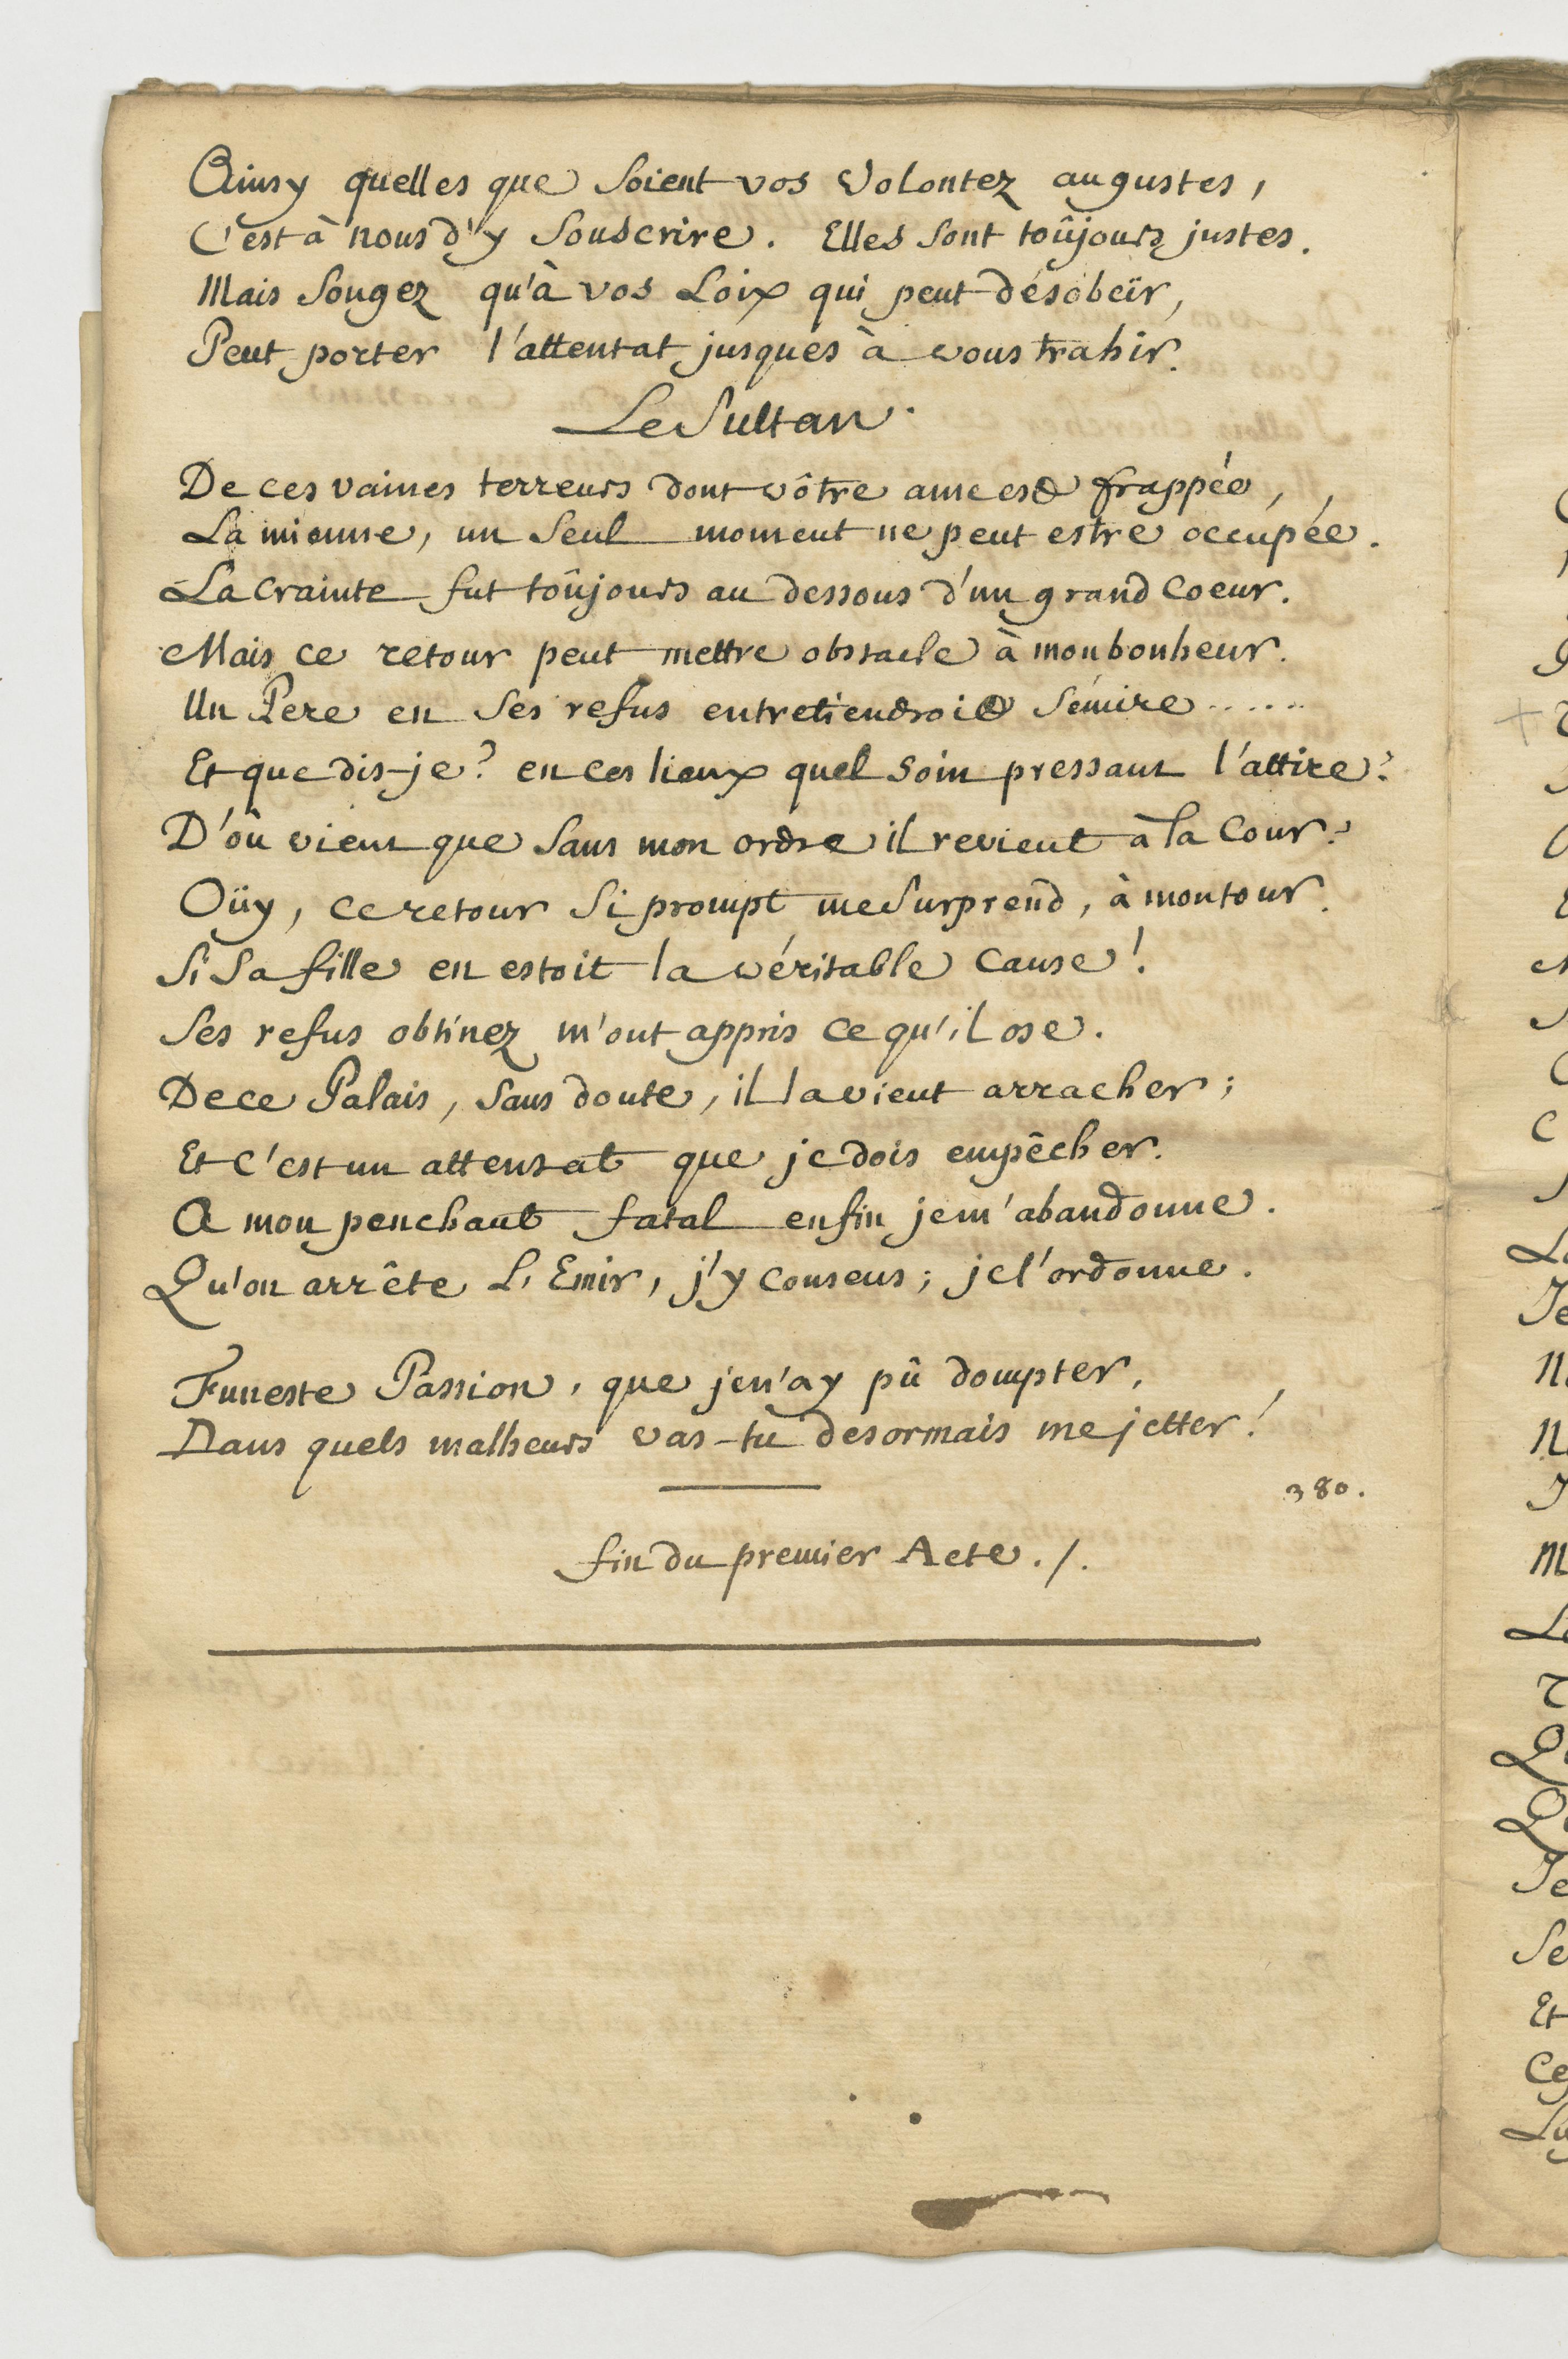 Ainsy quelles que soient vos Volontez augustes,
C'est à nous d'y souscrire. Elles sont toûjours justes.
Mais songez qu'à vos Loix qui peut désobeïr,
Peut porter l'attentat jusques à vous trahir.
Le Sultan.
De ces vaines terreurs dont vôtre ame est frappée,
La mienne, un seul moment ne peut estre occupée.
La crainte fut toûjours au dessous d'un grand Coeur.
Mais ce retour peut mettre obstacle à mon bonheur.
Un Pere en ses refus entretiendroit Sémire......
Et que dis-je? en ces lieux quel soin pressant l'attire?
D'où vient que sans mon ordre il revient à la Cour?
Oüy, ce retour si prompt me surprend, à mon tour.
Si sa fille en estoit la véritable Cause!
Ses refus obstinez m'ont appris ce qu'il ose.
De ce Palais, sans doute, il la vient arracher;
Et c'est un attentat que je dois empêcher.
A mon penchant fatal enfin je m'abandonne.
Qu'on arrête L'Emir, j'y consens; je l'ordonne.
Funeste Passion, que je n'ay pû dompter,
Dans quels malheurs vas-tu desormais me jetter!
380.
fin du premier Acte./.